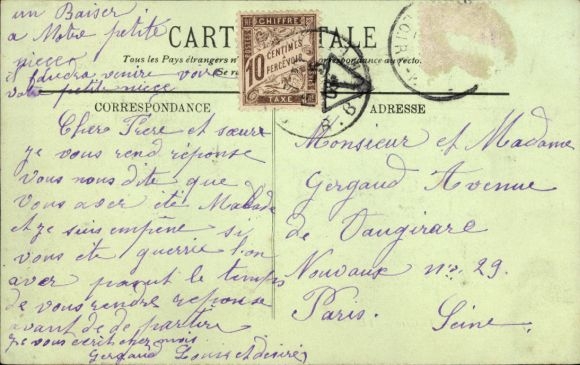 un Baiser
a Notre petite
niece
il faudra venire voire
votre petite niece
CARTE POSTALE
Tous les Pays étrangers n'
correspondance au recto.
CHIFFRE
10 CENTIMES
A PERCEVOIR
TAXE
CORRESPONDANCE
Chere Frere et soeure
je vous rend réponse
vous nous dite que
vous aver été Malade
et je suis empêne si
vous ete guerrie l'on
aver paseut le temps
de vous rendre reponse
avant de de partire
je vous ecrit chez mois
Gergaud Louis et désiré
ADRESSE
Monsieur et Madame
Gergaud Avenue
de Vaugirare
Nouvaux no 29.
Paris. Seine